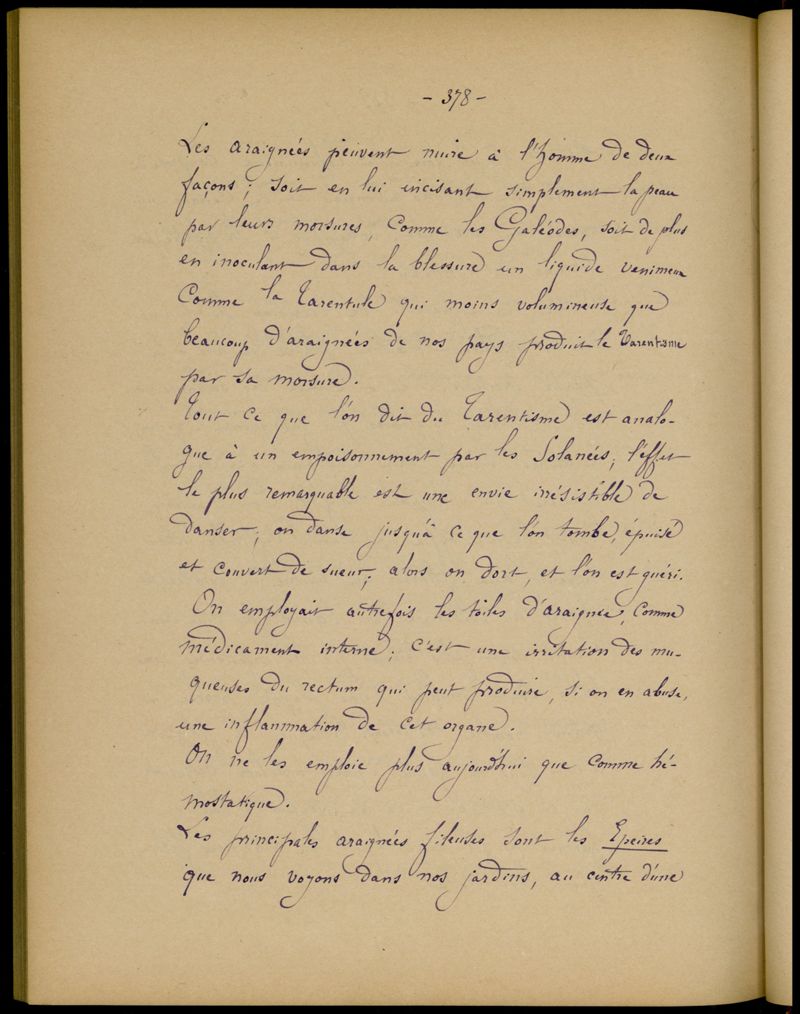 - 378 -
Les araignées peuvent nuire à l'homme de deux
façons; soit en lui incisant simplement la peau
par leurs morsures, comme les Galéodes, soit de plus
en inoculant dans la blessure un liquide venimeux
comme la Tarentule qui moins volumineuse que
beaucoup d'araignées de nos pays produit le Tarentisme
par sa morsure.
Tout ce que l'on dit du Tarentisme est analo-
gue à un empoisonnement par les Solanées; l'effet
le plus remarquable est une envie irrésistible de
danser; on danse jusqu'à ce que l'on tombe, épuisé
et couvert de sueur; alors on dort, et l'on est guéri.
On employait autrefois les toiles d'araignée, comme
médicament interne; c'est une irritation des mu-
queuses du rectum qui peut produire, si on en abuse,
une inflammation de cet organe.
On ne les emploie plus aujourd'hui que comme hé-
mostatique.
Les principales araignées fileuses sont les Epeires
que nous voyons dans nos jardins, au centre d'une